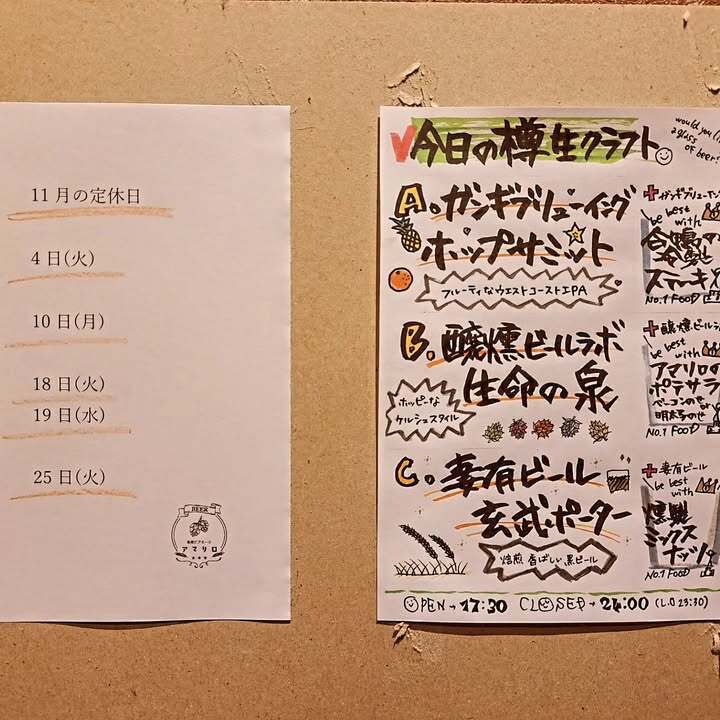 11月の定休日
4日(火)
10日(月)
18日(火)
19日(水)
25日(火)
BEER
アマリロ
今日の樽生クラフト
would you li
a glass
of beer?
A. ガンギブリューイング
ホップサミット
フルーティなウエストコーストIPA
+ガンギブリューイン
be best
with
スマーキ
No.1 FOOD
B. 醸燻ビールラボ
生命の泉
ホッピーな
ケルシュスタイル
+醸燻ビールラ
be best
with
アマリロの
ポテサラ
ベーコンのせ or
明太子のせ
No.1 FOOD
C. 妻有ビール
玄武ポーター
焙煎 香ばしい黒ビール
+妻有ビール
be best
with
燻製
ミックス
ナッツ
No.1 FOOD
OPEN→17:30 CLOSED→24:00 (L.O 23:30)